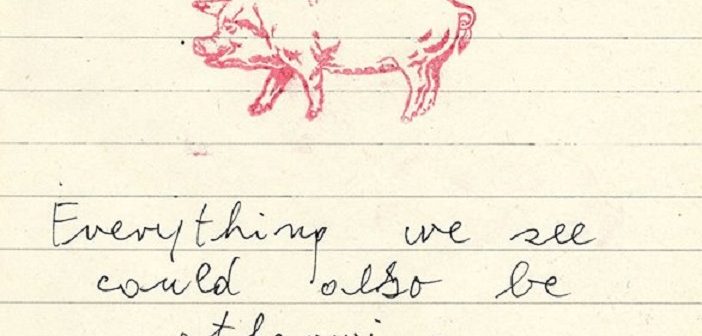 Everything we see
could also be